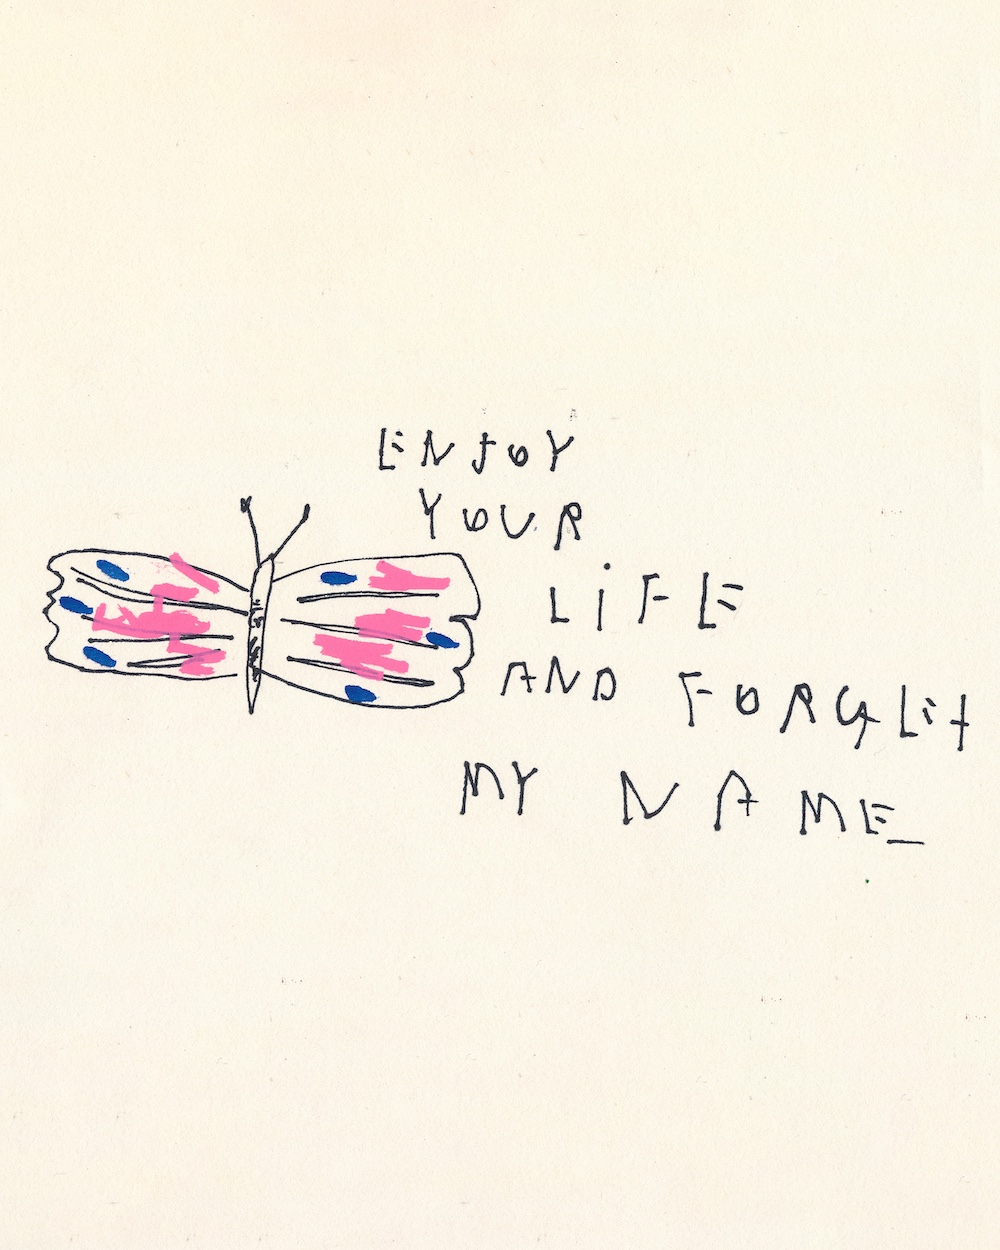 ENJOY
YOUR
LiFE
AND FORGEt
MY NAME_